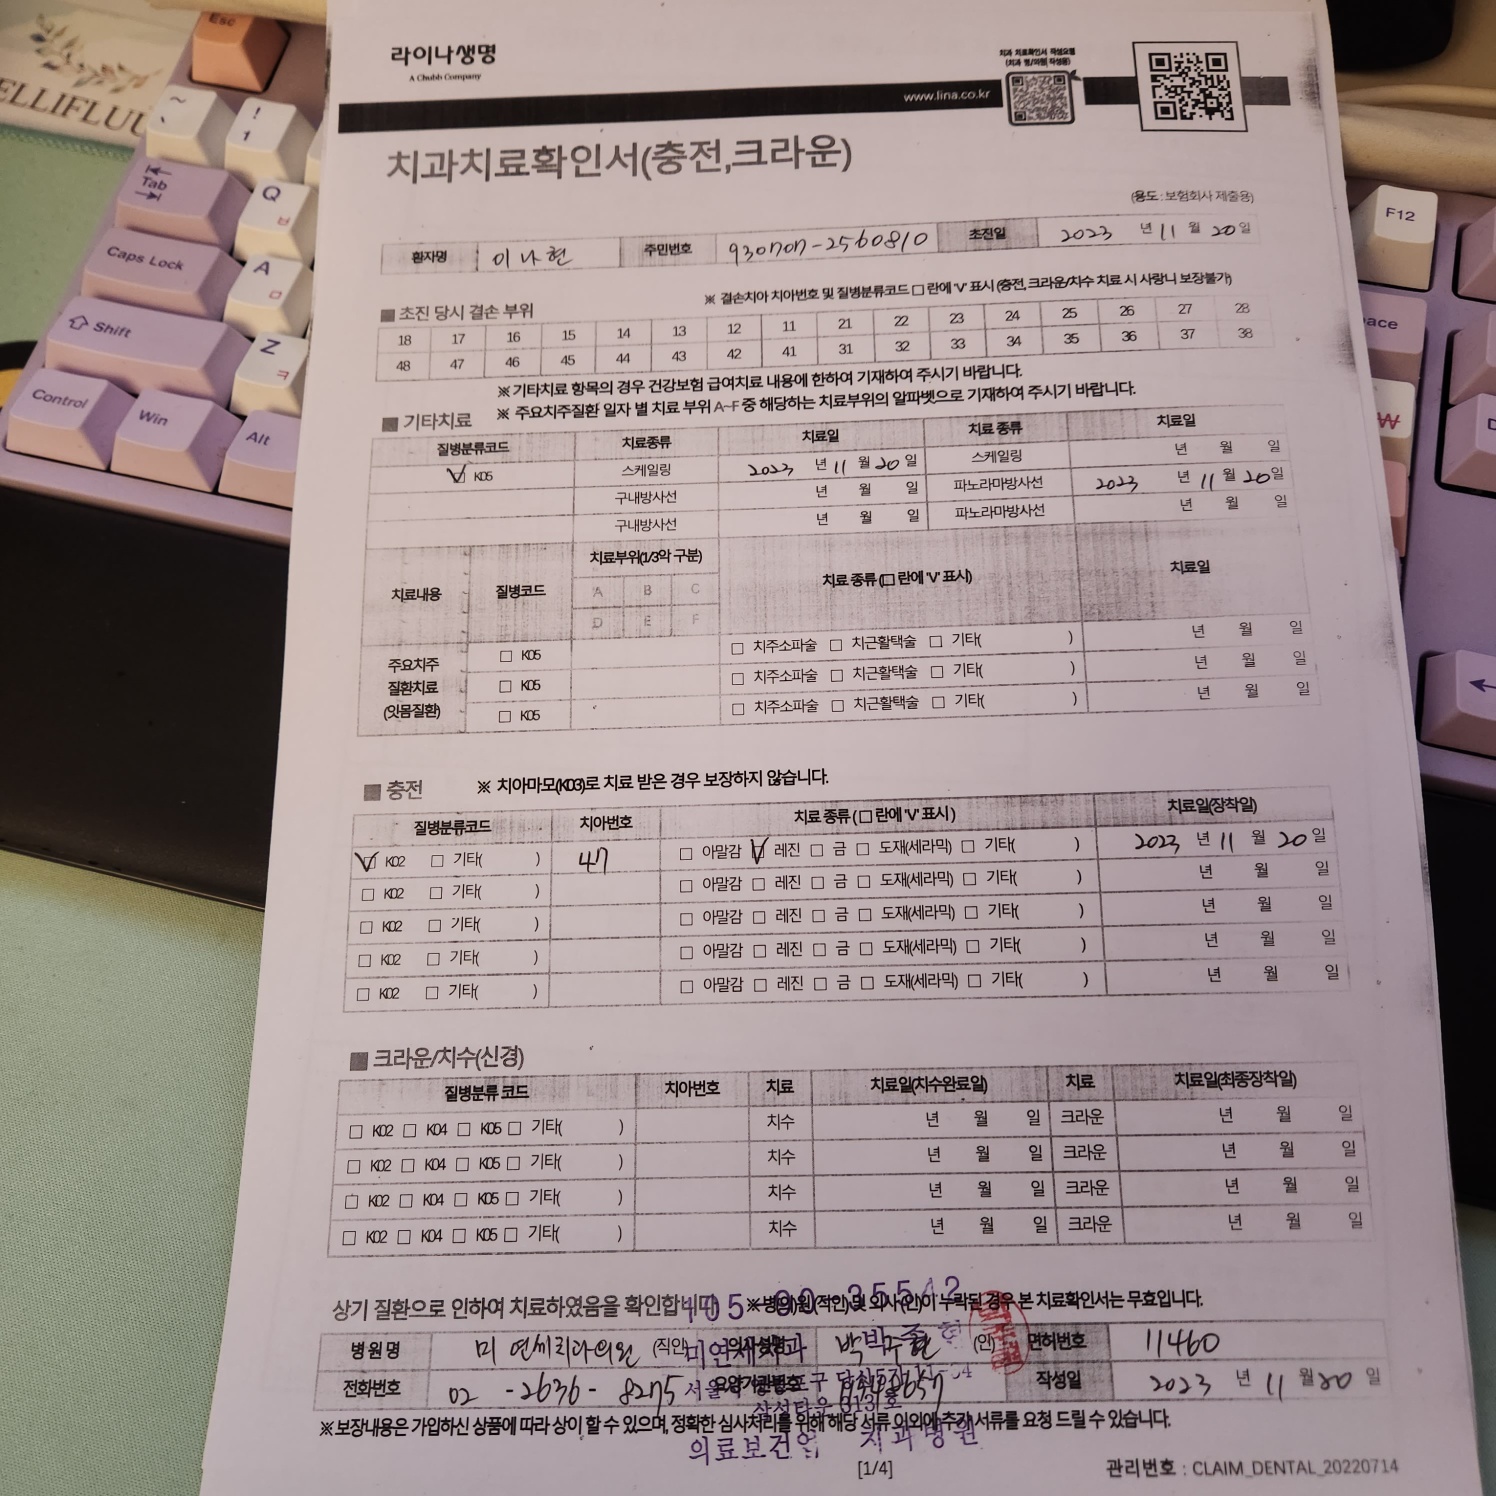 Esc
ELLIFLUU
~
!
1
Tab
Q
ㅂ
Caps Lock
A
ㅁ
Shift
Z
ㅋ
Control
Win
Alt
F12
ace
₩
라이나생명
A Chubb Company
치과 치료확인서 작성요령
(치과 병/의원 작성용)
www.lina.co.kr
치과치료확인서(충전,크라운)
(용도 : 보험회사 제출용)
환자명 이나현 주민번호 930707-2560810 초진일 2023 년 11 월 20 일
■ 초진 당시 결손 부위 ※ 결손치아 치아번호 및 질병분류코드 □ 란에 'V' 표시 (충전, 크라운/치수 치료 시 사랑니 보장불가)
18 17 16 15 14 13 12 11 21 22 23 24 25 26 27 28
48 47 46 45 44 43 42 41 31 32 33 34 35 36 37 38
※ 기타치료 항목의 경우 건강보험 급여치료 내용에 한하여 기재하여 주시기 바랍니다.
■ 기타치료 ※ 주요치주질환 일자 별 치료 부위 A~F 중 해당하는 치료부위의 알파벳으로 기재하여 주시기 바랍니다.
질병분류코드 치료종류 치료일 치료 종류 치료일
V K05 스케일링 2023 년 11 월 20 일 스케일링 년 월 일
구내방사선 년 월 일 파노라마방사선 2023 년 11 월 20 일
구내방사선 년 월 일 파노라마방사선 년 월 일
치료내용 질병코드 치료부위(1/3악 구분) 치료 종류 (□ 란에 'V' 표시) 치료일
A B C
D E F
주요치주
질환치료
(잇몸질환)
□ K05 □ 치주소파술 □ 치근활택술 □ 기타( ) 년 월 일
□ K05 □ 치주소파술 □ 치근활택술 □ 기타( ) 년 월 일
□ K05 □ 치주소파술 □ 치근활택술 □ 기타( ) 년 월 일
■ 충전 ※ 치아마모(K03)로 치료 받은 경우 보장하지 않습니다.
질병분류코드 치아번호 치료 종류 (□ 란에 'V' 표시) 치료일(장착일)
V K02 □ 기타( ) 47 □ 아말감 V 레진 □ 금 □ 도재(세라믹) □ 기타( ) 2023 년 11 월 20 일
□ K02 □ 기타( ) □ 아말감 □ 레진 □ 금 □ 도재(세라믹) □ 기타( ) 년 월 일
□ K02 □ 기타( ) □ 아말감 □ 레진 □ 금 □ 도재(세라믹) □ 기타( ) 년 월 일
□ K02 □ 기타( ) □ 아말감 □ 레진 □ 금 □ 도재(세라믹) □ 기타( ) 년 월 일
□ K02 □ 기타( ) □ 아말감 □ 레진 □ 금 □ 도재(세라믹) □ 기타( ) 년 월 일
■ 크라운/치수(신경)
질병분류 코드 치아번호 치료 치료일(치수완료일) 치료 치료일(최종장착일)
□ K02 □ K04 □ K05 □ 기타( ) 치수 년 월 일 크라운 년 월 일
□ K02 □ K04 □ K05 □ 기타( ) 치수 년 월 일 크라운 년 월 일
□ K02 □ K04 □ K05 □ 기타( ) 치수 년 월 일 크라운 년 월 일
□ K02 □ K04 □ K05 □ 기타( ) 치수 년 월 일 크라운 년 월 일
상기 질환으로 인하여 치료하였음을 확인합니다 ※병(의)원(직인) 및 의사(인)이 누락된 경우 본 치료확인서는 무효입니다.
병 원 명 미 연세치과의원 (직인) 의사성명 (인) 면허번호 11460
전화번호 02 -2636- 8275 요양기관번호 작성일 2023 년 11 월 20 일
※ 보장내용은 가입하신 상품에 따라 상이 할 수 있으며, 정확한 심사처리를 위해 해당 서류 이외에 추가 서류를 요청 드릴 수 있습니다.
의료보건업 치과병원
[1/4]
관리번호 : CLAIM_DENTAL_20220714